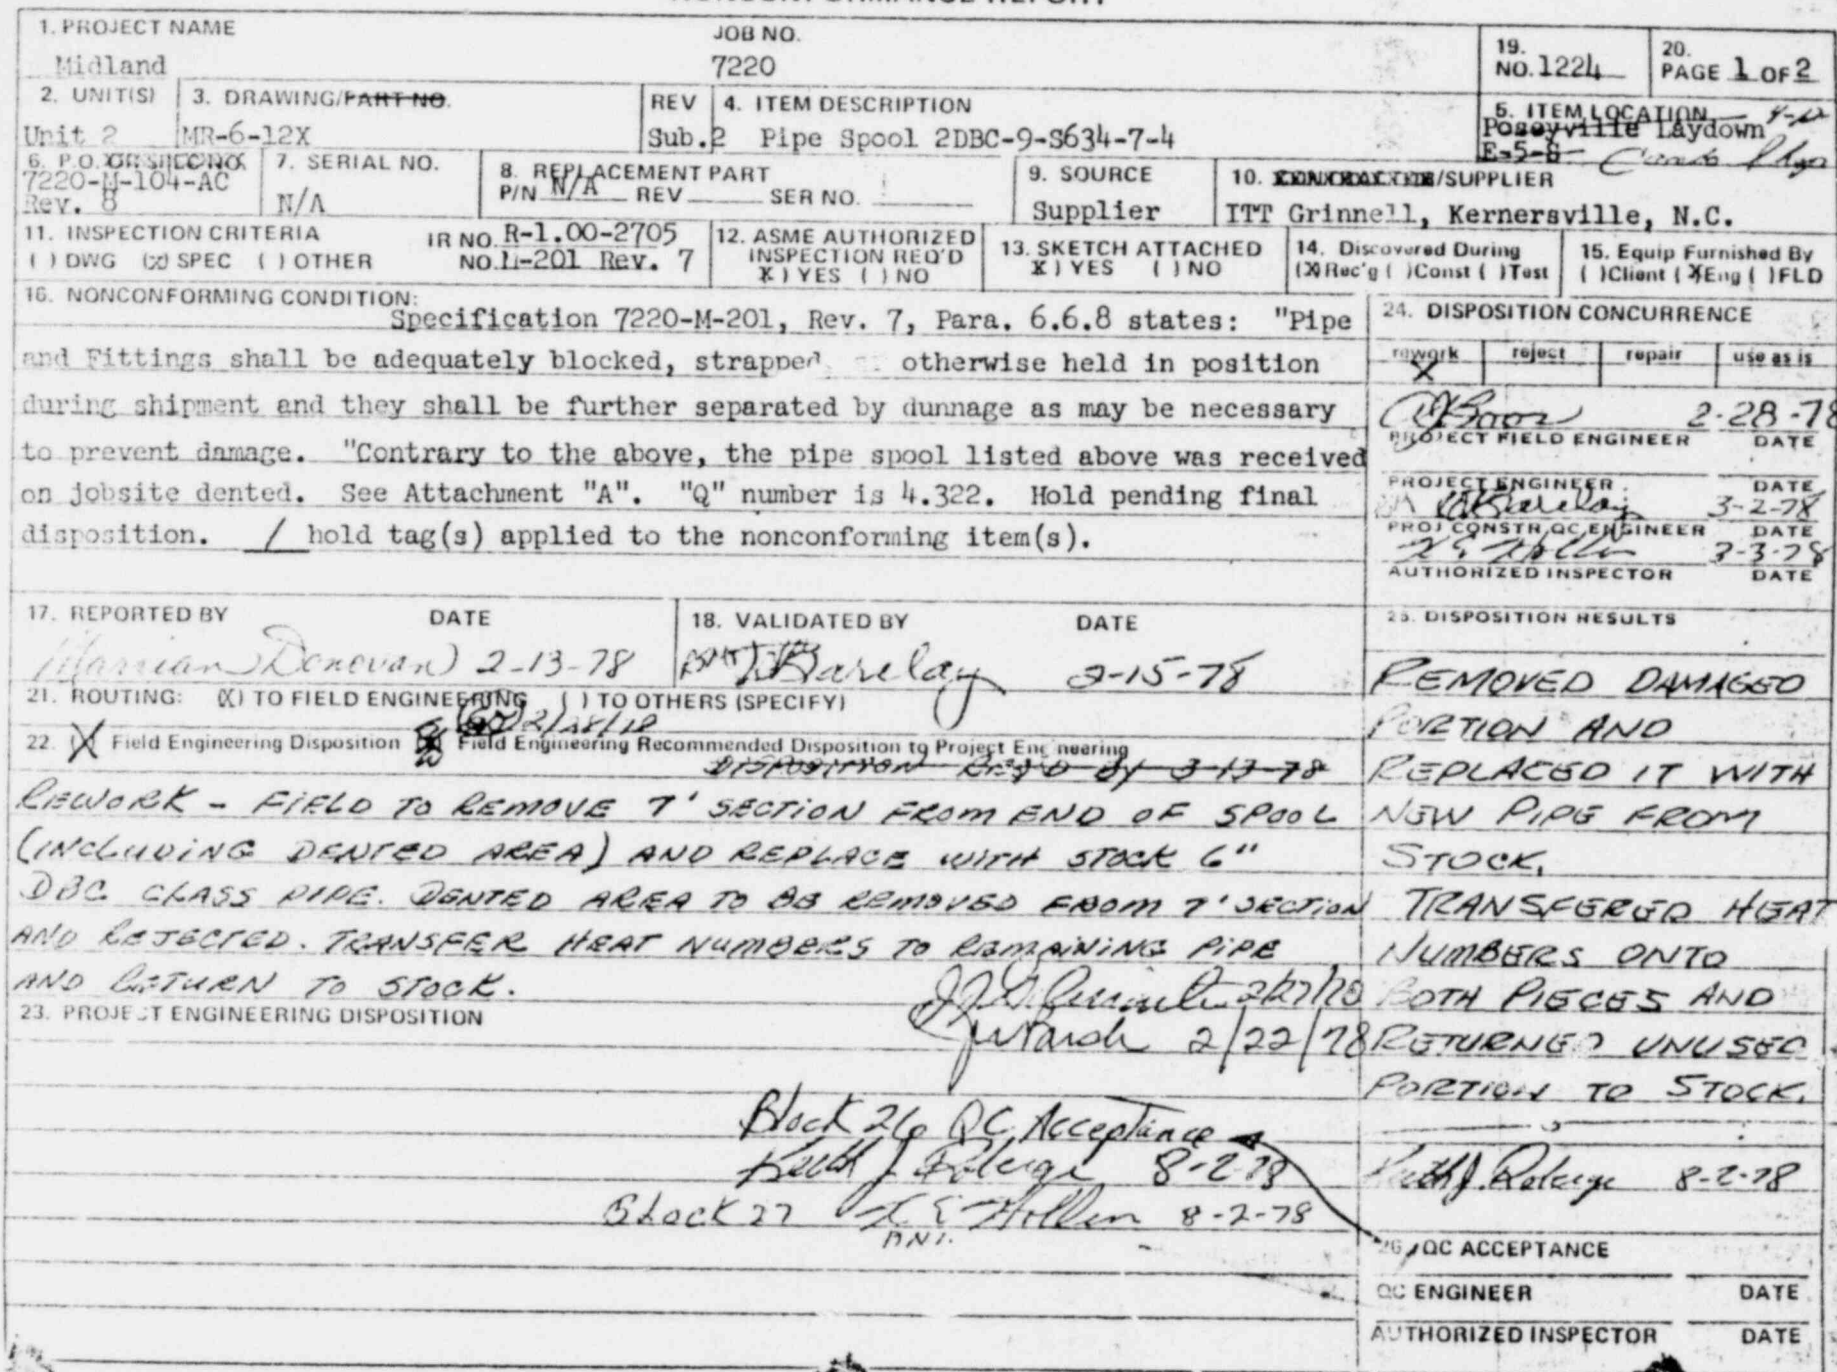 1. PROJECT NAME JOB NO.
Midland 7220
19. NO. 1224
20. PAGE 1 OF 2
2. UNIT(S) 3. DRAWING/PART NO. REV 4. ITEM DESCRIPTION
Unit 2 MR-6-12X Sub.2 Pipe Spool 2DBC-9-S634-7-4
5. ITEM LOCATION
Poseyville Laydown
E-5-8
6. P.O. OR SPEC NO. 7. SERIAL NO. 8. REPLACEMENT PART 9. SOURCE 10. CONTRACTOR/SUPPLIER
7220-M-104-AC
Rev. 8 N/A P/N N/A REV SER NO. Supplier ITT Grinnell, Kernersville, N.C.
11. INSPECTION CRITERIA IR NO. R-1.00-2705
( ) DWG (X) SPEC ( ) OTHER NO. M-201 Rev. 7
12. ASME AUTHORIZED
INSPECTION REQ'D
(X) YES ( ) NO
13. SKETCH ATTACHED
(X) YES ( ) NO
14. Discovered During
(X) Rec'g ( ) Const ( ) Test
15. Equip Furnished By
( ) Client (X) Eng ( ) FLD
16. NONCONFORMING CONDITION:
Specification 7220-M-201, Rev. 7, Para. 6.6.8 states: "Pipe
and Fittings shall be adequately blocked, strapped otherwise held in position
during shipment and they shall be further separated by dunnage as may be necessary
to prevent damage. "Contrary to the above, the pipe spool listed above was received
on jobsite dented. See Attachment "A". "Q" number is 4.322. Hold pending final
disposition. / hold tag(s) applied to the nonconforming item(s).
24. DISPOSITION CONCURRENCE
rework reject repair use as is
X
2-28-78
PROJECT FIELD ENGINEER DATE
PROJECT ENGINEER DATE
Barclay 3-2-78
PROJ CONSTR QC ENGINEER DATE
3-3-78
AUTHORIZED INSPECTOR DATE
17. REPORTED BY DATE 18. VALIDATED BY DATE
Donovan 2-13-78 Barclay 2-15-78
21. ROUTING: (X) TO FIELD ENGINEERING ( ) TO OTHERS (SPECIFY)
2/28/78
22. (X) Field Engineering Disposition Field Engineering Recommended Disposition to Project Engineering
DISPOSITION REQ'D BY 3-13-78
REWORK - FIELD TO REMOVE 7' SECTION FROM END OF SPOOL
(INCLUDING DENTED AREA) AND REPLACE WITH STOCK 6"
DBC CLASS PIPE. DENTED AREA TO BE REMOVED FROM 7' SECTION
AND REJECTED. TRANSFER HEAT NUMBERS TO REMAINING PIPE
AND RETURN TO STOCK.
2/22/78
23. PROJECT ENGINEERING DISPOSITION
Block 26 QC Acceptance
Keith J. 8-2-78
Block 27 8-2-78
ANI.
25. DISPOSITION RESULTS
REMOVED DAMAGED
PORTION AND
REPLACED IT WITH
NEW PIPE FROM
STOCK.
TRANSFERED HEAT
NUMBERS ONTO
BOTH PIECES AND
RETURNED UNUSED
PORTION TO STOCK.
Keith J. 8-2-78
26. QC ACCEPTANCE
QC ENGINEER DATE
AUTHORIZED INSPECTOR DATE